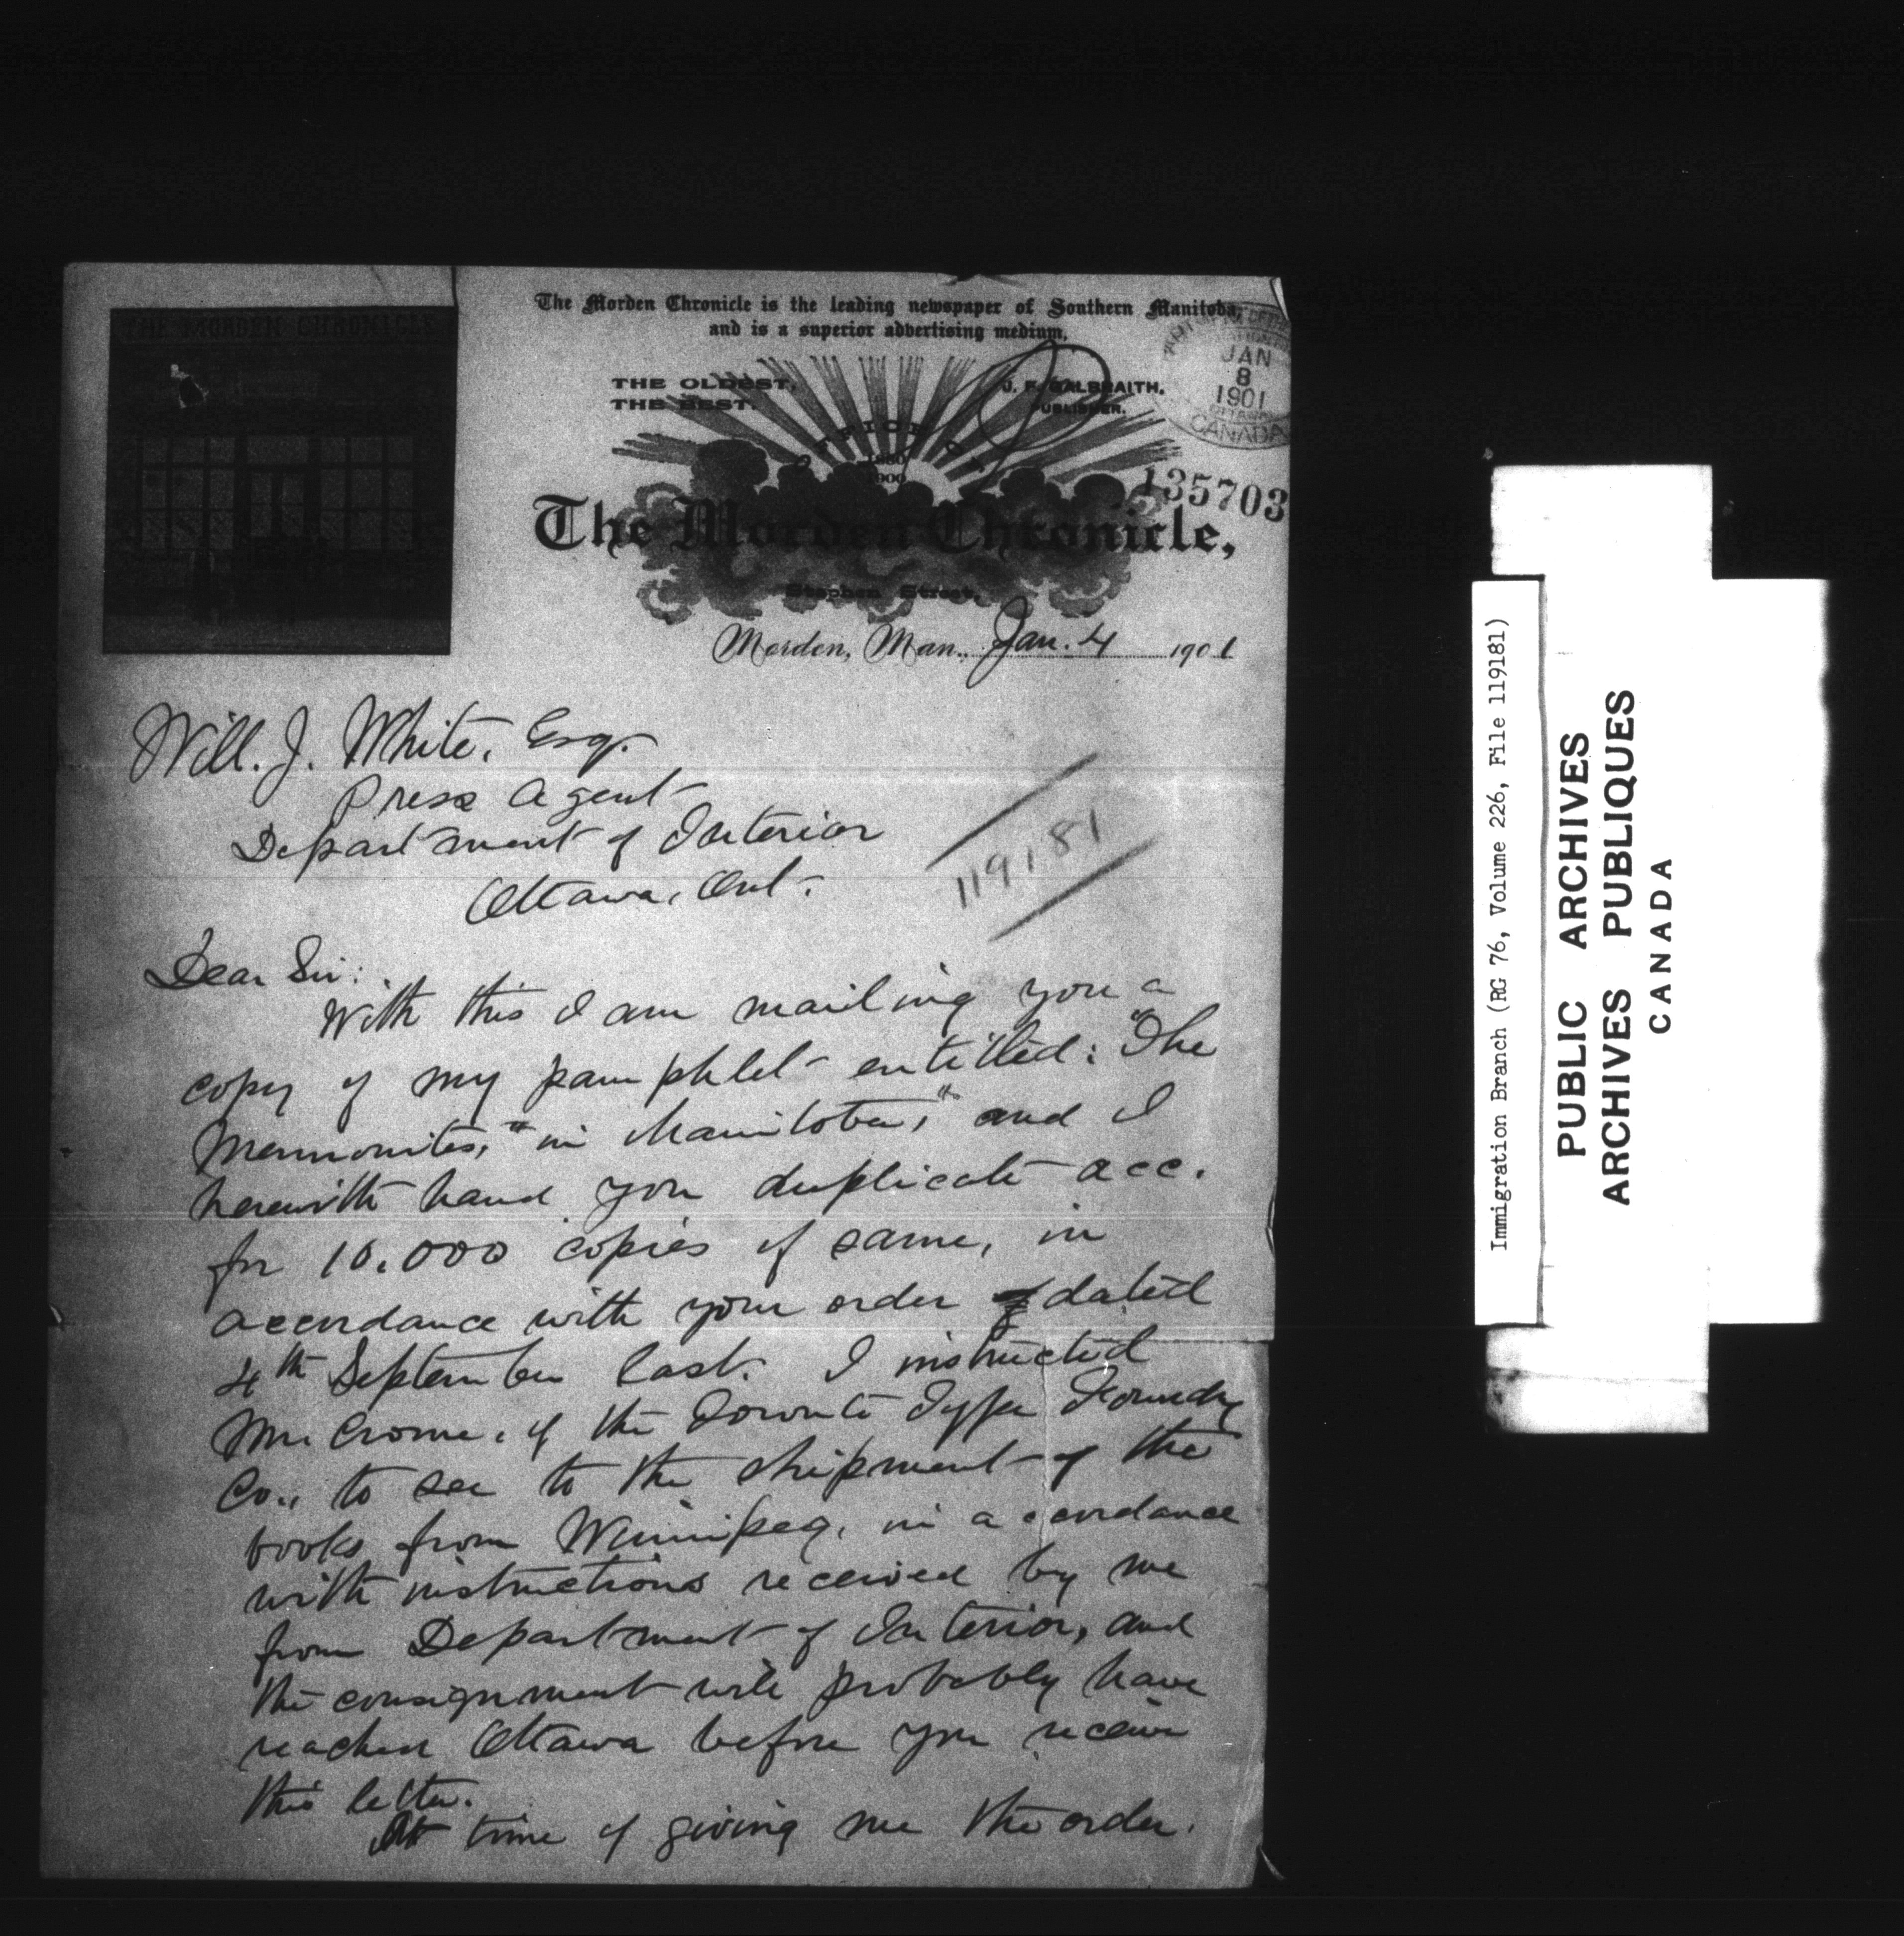 THE MORDEN CHRONICLE
The Morden Chronicle is the leading newspaper of Southern Manitoba,
and is a superior advertising medium.
THE OLDEST,
THE BEST.
J. F. GALBRAITH.
PUBLISHER.
OFFICE OF
1900
JAN
8
1901
OTTAWA
CANADA
135703
The Morden Chronicle,
Stephen Street,
Morden, Man., Jan. 4 1901
Will. J. White, Esq.
Press Agent
Department of Interior
Ottawa, Ont.
119181
Dear Sir:
With this I am mailing you a
copy of my pamphlet entitled: "The
Mennonites," in Manitoba," and I
herewith hand you duplicate acc.
for 10.000 copies of same, in
accordance with your order dated
4th September last. I instructed
Mr. Crome, of the Toronto Type Foundry
Co., to see to the shipment of the
books from Winnipeg, in accordance
with instructions received by me
from Department of Interior, and
the consignment will probably have
reached Ottawa before you receive
this letter.
At time of giving me the order.
Immigration Branch (RG 76, Volume 226, File 119181)
PUBLIC ARCHIVES
ARCHIVES PUBLIQUES
CANADA